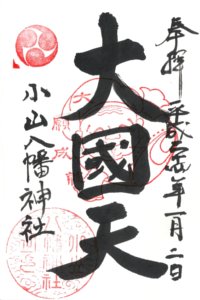 奉拝
平成二十八年一月二日
大國天
小山八幡神社
大願成就